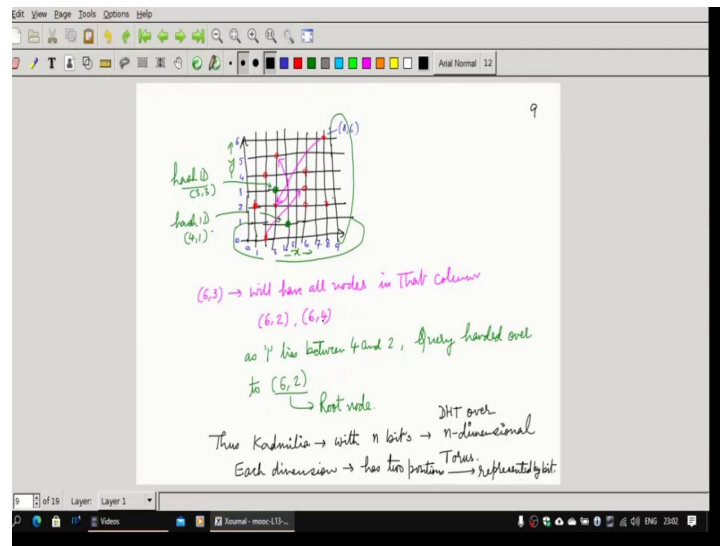 Edit View Page Tools Options Help
T Arial Normal 12
9
(8,6)
6
5
4
3
2
1
0
y
hash ID
(3,3)
hash ID
(4,1)
0 1 3 4 5 6 7 8 9
x →
(6,3) → will have all nodes in that column
(6,2), (6,4)
as '1' lies between 4 and 2, Query handed over
to (6,2)
Root node.
DHT over
Thus Kadmilia → with n bit's → n-dimensional
Torus.
Each dimension → has two portions → represented by bit.
9 of 19 Layer: Layer 1
Videos Xournal - mooc-L13-... ENG 23:02